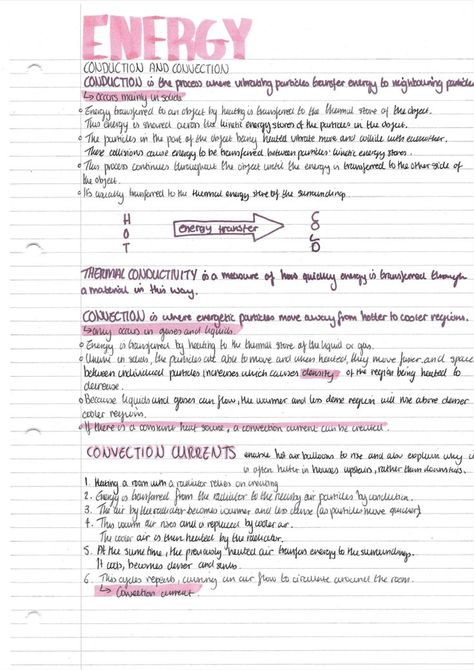 ENERGY
CONDUCTION AND CONVECTION
CONDUCTION is the process where vibrating particles transfer energy to neighbouring particles
↳ occurs mainly in solids
Energy transferred to an object by heating is transferred to the thermal store of the object.
This energy is shared across the kinetic energy stores of the particles in the object.
The particles in the part of the object being heated vibrate more and collide with eachother.
These collisions cause energy to be transferred between particles' kinetic energy stores.
This process continues throughout the object until the energy is transferred to the other side of
the object.
It's usually transferred to the thermal energy store of the surroundings.
HOT energy transfer COLD
THERMAL CONDUCTIVITY is a measure of how quickly energy is transferred through
a material in this way.
CONVECTION is where energetic particles move away from hotter to cooler regions.
↳ only occurs in gases and liquids.
Energy is transferred by heating to the thermal store of the liquid or gas.
Unlike in solids, the particles are able to move and when heated, they move faster and space
between individual particles increases which causes density of the region being heated to
decrease.
Because liquids and gases can flow, the warmer and less dense region will rise above denser
cooler regions.
If there is a constant heat source, a convection current can be created.
CONVECTION CURRENTS enable hot air balloons to rise and also explain why it
is often hotter in houses upstairs, rather than downstairs.
1. Heating a room with a radiator relies on creating
2. Energy is transferred from the radiator to the nearby air particles by conduction.
3. The air by the radiator becomes warmer and less dense (as particles move quicker)
4. This warm air rises and is replaced by cooler air.
The cooler air is then heated by the radiator.
5. At the same time, the previously heated air transfers energy to the surroundings.
It cools, becomes denser and sinks.
6. This cycle repeats, causing an air flow to circulate around the room.
↳ Convection current